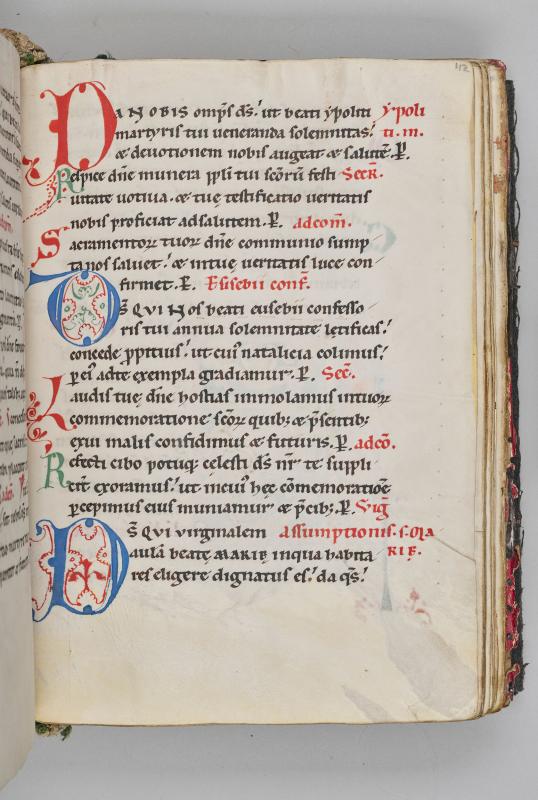 42
DA NOBIS omp̄s ds̄.' ut beati ẏpoliti ẏpoli
martyris tui ueneranda solemnitas.' ti. m.
& deuotionem nobis augeat & salutē. P̲.
Respice dn̄e munera ppli tui scōrū festi Secr̄.
iuitate uotiua. & tuę testificatio ueritatis
nobis proficiat ad salutem. P̲. ad com̄.
Sacramentoꝝ tuoꝝ dn̄e communio sump
ta nos saluet.' & in tuę ueritatis luce con
firmet. P̲. Eusebii conf̄.
Ds̄ QVI Nos beati eusebii confesso
ris tui annua solemnitate lętificas.'
concede ꝓpitius.' ut cuiꝰ natalicia colimus.'
ꝑ eiꝰ ad te exempla gradiamur. P̲. Sec̄.
Laudis tuę dn̄e hostias immolamus in tuoꝝ
commemoratione scōꝝ quibꝫ & p̄sentibꝫ
exui malis confidimus & futuris. P̲. ad cō.
Refecti cibo potuqꝫ celesti ds̄ nr̄ te suppli
exoramus.' ut in cuiꝰ hęc cōmemoratiōe
ꝑcepimus eius muniamur & p̄cibꝫ. P̲. Viḡ
Ds̄ QVI virginalem Assumptionis. s. MA
aulā beatę MARIE in qua habita RIE.
res eligere dignatus es.' da qs̄.'